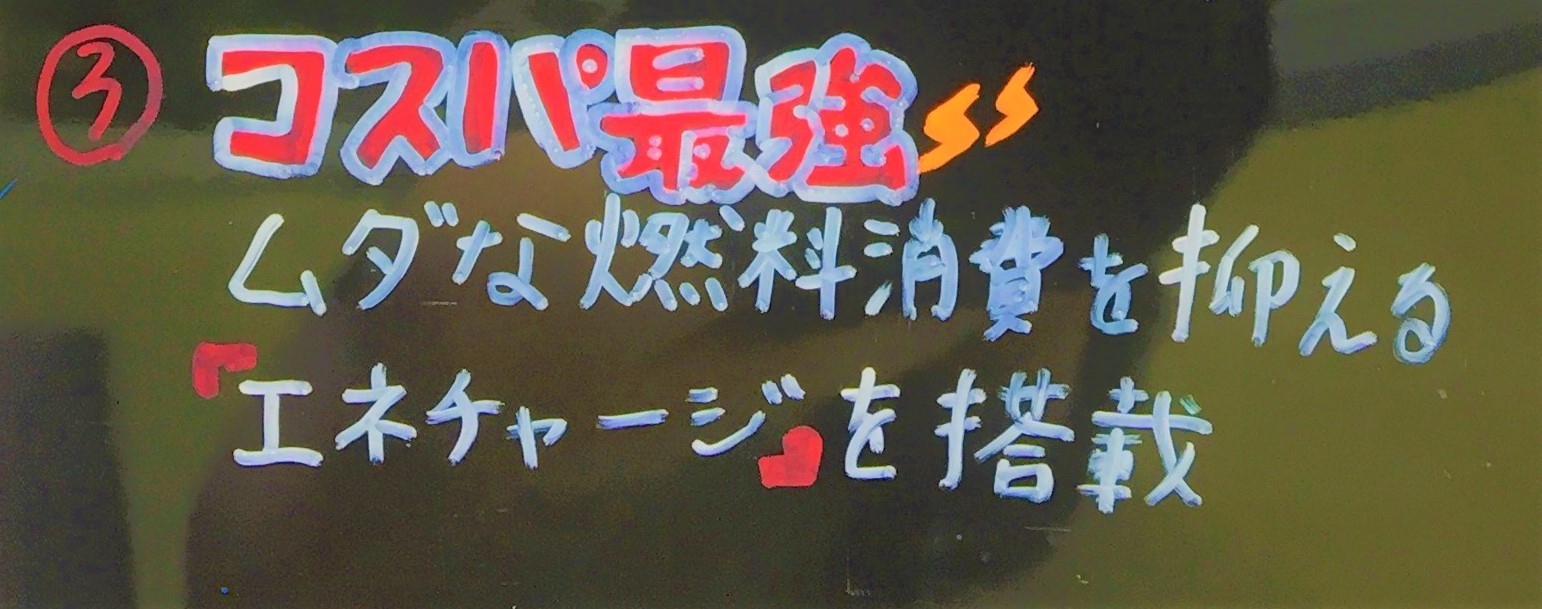 ③ コスパ最強
ムダな燃料消費を抑える
「エネチャージ」を搭載